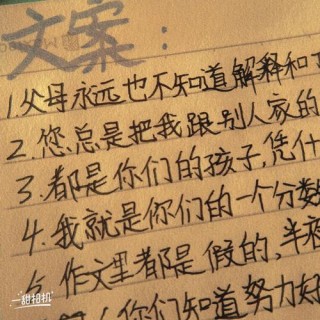 文案:
1.父母永远也不知道解释和
2.您总是把我跟别人家的
3.都是你们的孩子,凭什
4.我就是你们的一个分数
5.作文里都是假的、半夜
你们知道努力好
一甜相机